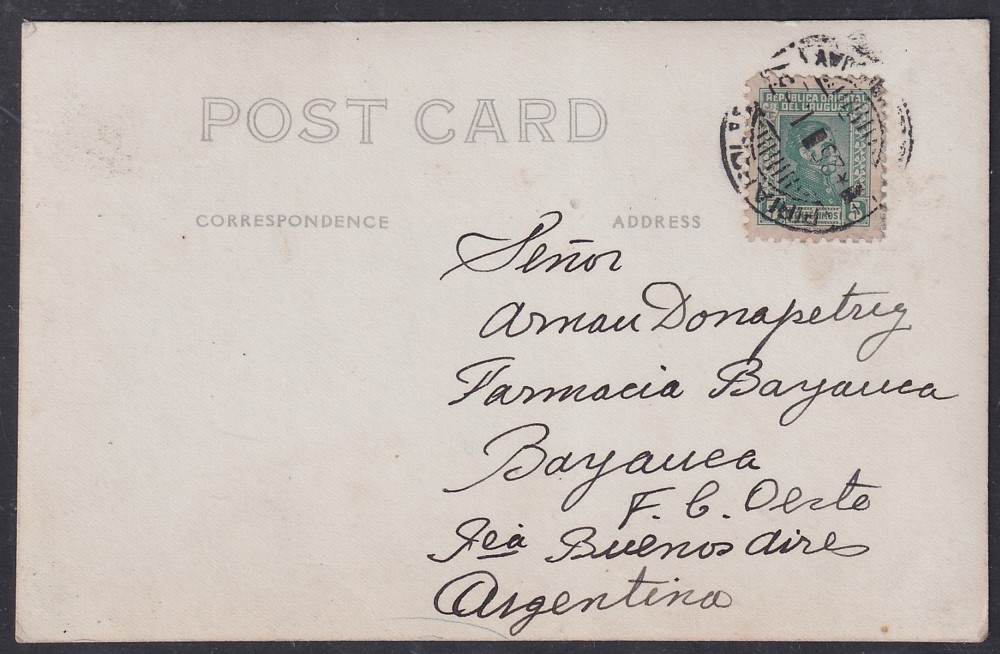 POST CARD
CORRESPONDENCE
ADDRESS
REPUBLICA ORIENTAL
DEL URUGUAY
Señor
Arnau Donapetrey
Farmacia Bayauca
Bayauca
F. C. Oeste
Pcia Buenos Aires
Argentina